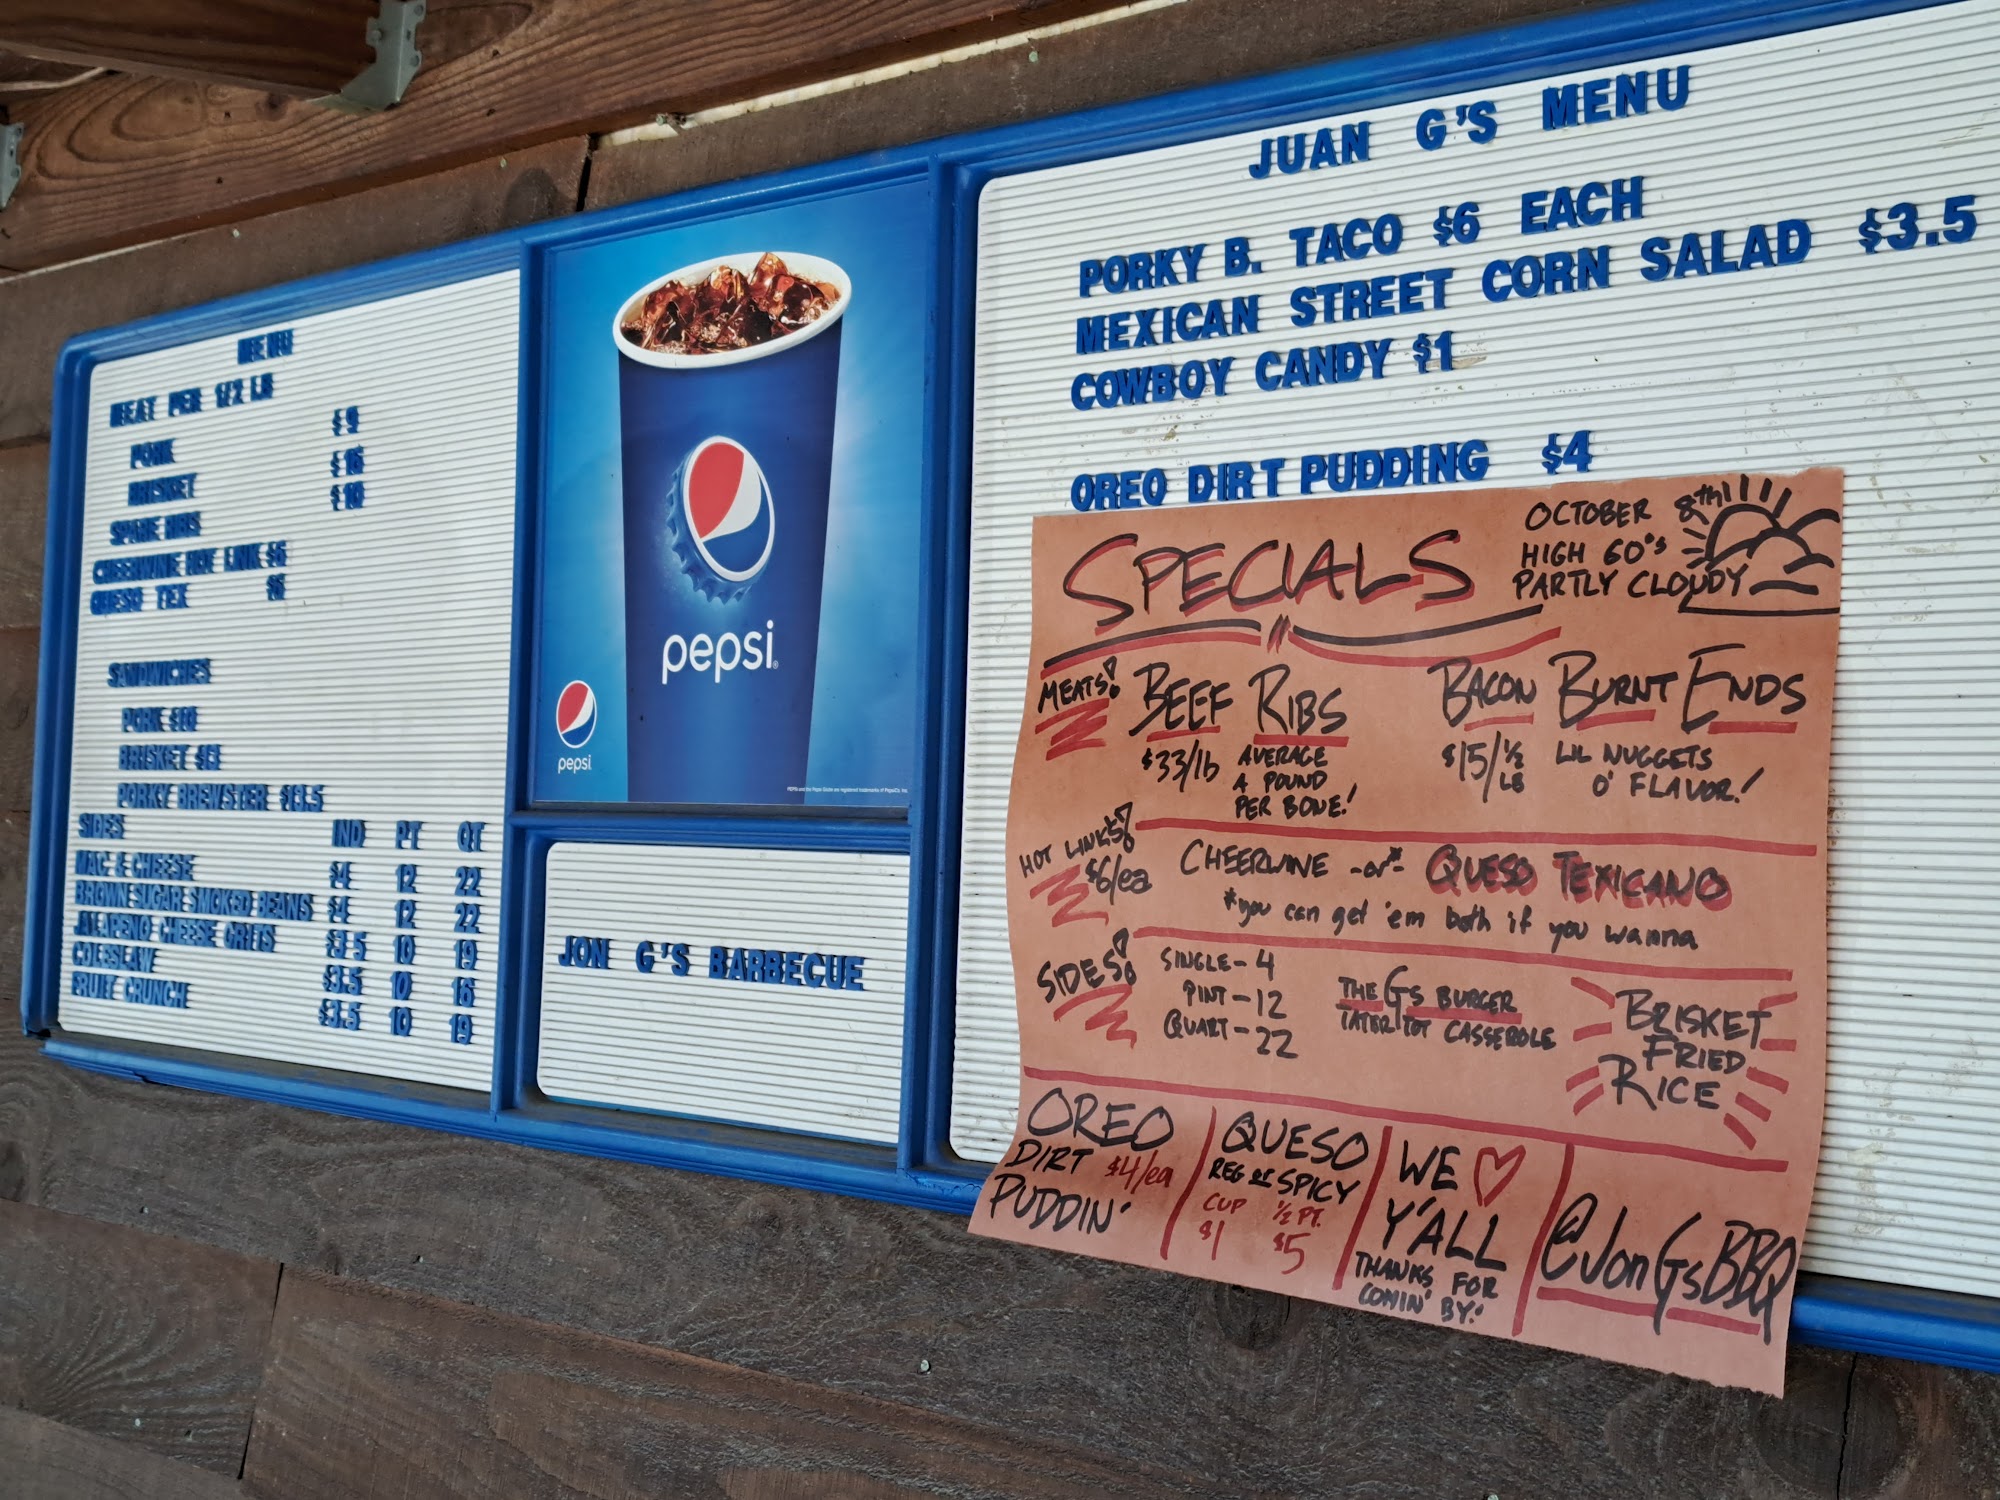 MENU
MEAT PER 1/2 LB
PORK $9
BRISKET $16
SPARE RIBS $10
CHEERWINE HOT LINK $6
QUESO TEX $6
SANDWICHES
PORK $10
BRISKET $13
PORKY BREWSTER $13.5
SIDES IND PT QT
MAC & CHEESE $4 12 22
BROWN SUGAR SMOKED BEANS $4 12 22
JALAPENO CHEESE GRITS $3.5 10 19
COLESLAW $3.5 10 16
FRUIT CRUNCH $3.5 10 19
pepsi
pepsi
JON G'S BARBECUE
JUAN G'S MENU
PORKY B. TACO $6 EACH
MEXICAN STREET CORN SALAD $3.5
COWBOY CANDY $1
OREO DIRT PUDDING $4
SPECIALS
OCTOBER 8th
HIGH 60°s
PARTLY CLOUDY
MEATS!
BEEF RIBS
$33/lb AVERAGE
A POUND
PER BONE!
BACON BURNT ENDS
$15/½ LB LIL NUGGETS
O' FLAVOR!
HOT LINKS!
$6/ea
CHEERWINE -or*- QUESO TEXICANO
*you can get 'em both if you wanna
SIDES!
SINGLE - 4
PINT - 12
QUART - 22
THE G's BURGER
TATER TOT CASSEROLE
BRISKET
FRIED
RICE
OREO
DIRT $4/ea
PUDDIN'
QUESO
REG or SPICY
CUP ½ PT.
$1 $5
WE ♡
Y'ALL
THANKS FOR
COMIN' BY!
@JonGsBBQ